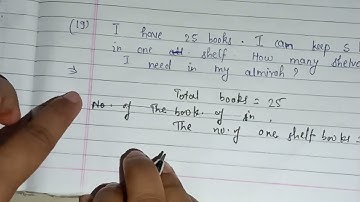 (19) I have 25 books. I can keep 5
in one shelf How many shelve
I need in my almirah ?
⇒ Total books = 25
No. of The book of in.
The no. of one shelf books =